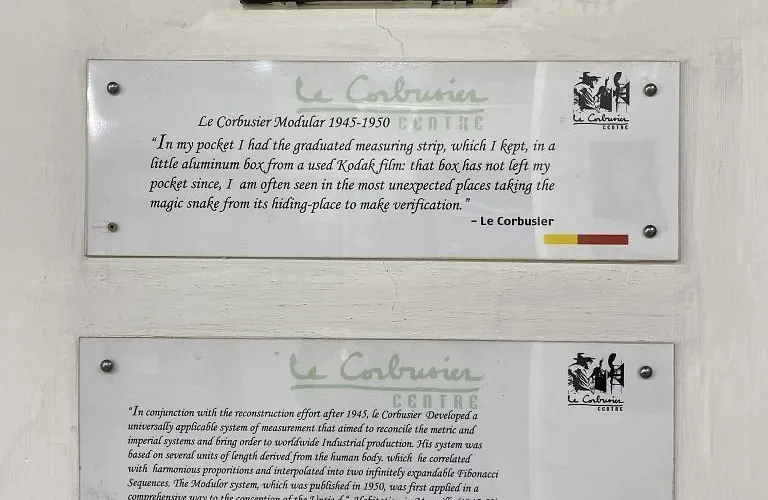 Le Corbusier
CENTRE
Le Corbusier
CENTRE
Le Corbusier Modular 1945-1950
“In my pocket I had the graduated measuring strip, which I kept, in a
little aluminum box from a used Kodak film: that box has not left my
pocket since, I am often seen in the most unexpected places taking the
magic snake from its hiding-place to make verification.”
– Le Corbusier
Le Corbusier
CENTRE
Le Corbusier
CENTRE
“In conjunction with the reconstruction effort after 1945, le Corbusier Developed a
universally applicable system of measurement that aimed to reconcile the metric and
imperial systems and bring order to worldwide Industrial production. His system was
based on several units of length derived from the human body. which he correlated
with harmonious proporitions and interpolated into two infinitely expandable Fibonacci
Sequences. The Modulor system, which was published in 1950, was first applied in a
comprehensive way to the conception of the